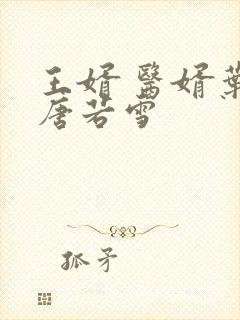 王婿醫婿葉
唐若雪
孤矛